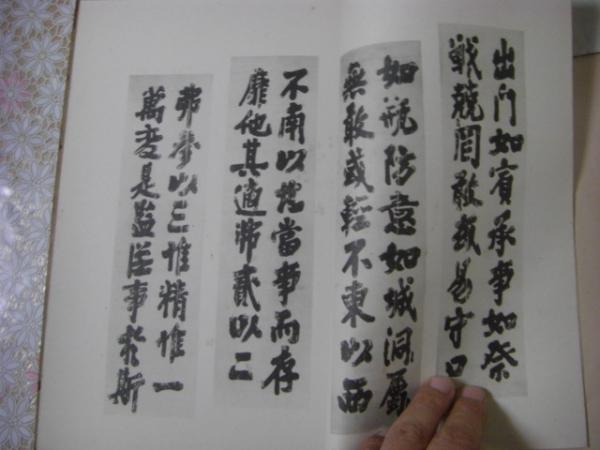 出門如賓承事如祭
戰兢罔敢或易守口
如瓶防意如城洞屬
無敢或輕不東以西
不南以北當事而存
靡他其適弗貳以二
弗參以三惟精惟一
萬變是監從事於斯